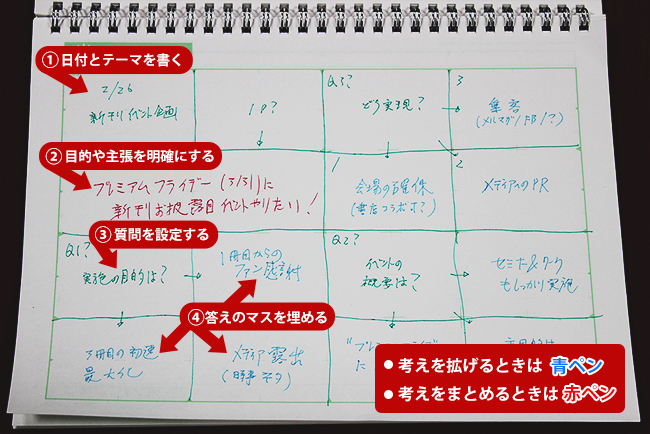 ①日付とテーマを書く
2/26
新刊イベント企画
1P?
Q3?
どう実現?
3
集客
(メルマガ/FB/?)
②目的や主張を明確にする
プレミアムフライデー(3/31)に
新刊お披露目イベントやりたい!
1
会場の確保
(書店コラボ?)
2
メディアへのPR
③質問を設定する
Q1?
実施の目的は?
1冊目からの
ファン感謝
Q2?
イベントの
概要は?
セミナー&ワーク
もしっかり実施
④答えのマスを埋める
3冊目の初速
最大化
メディア露出
(時事ネタ)
に
●考えを拡げるときは 青ペン
●考えをまとめるときは 赤ペン